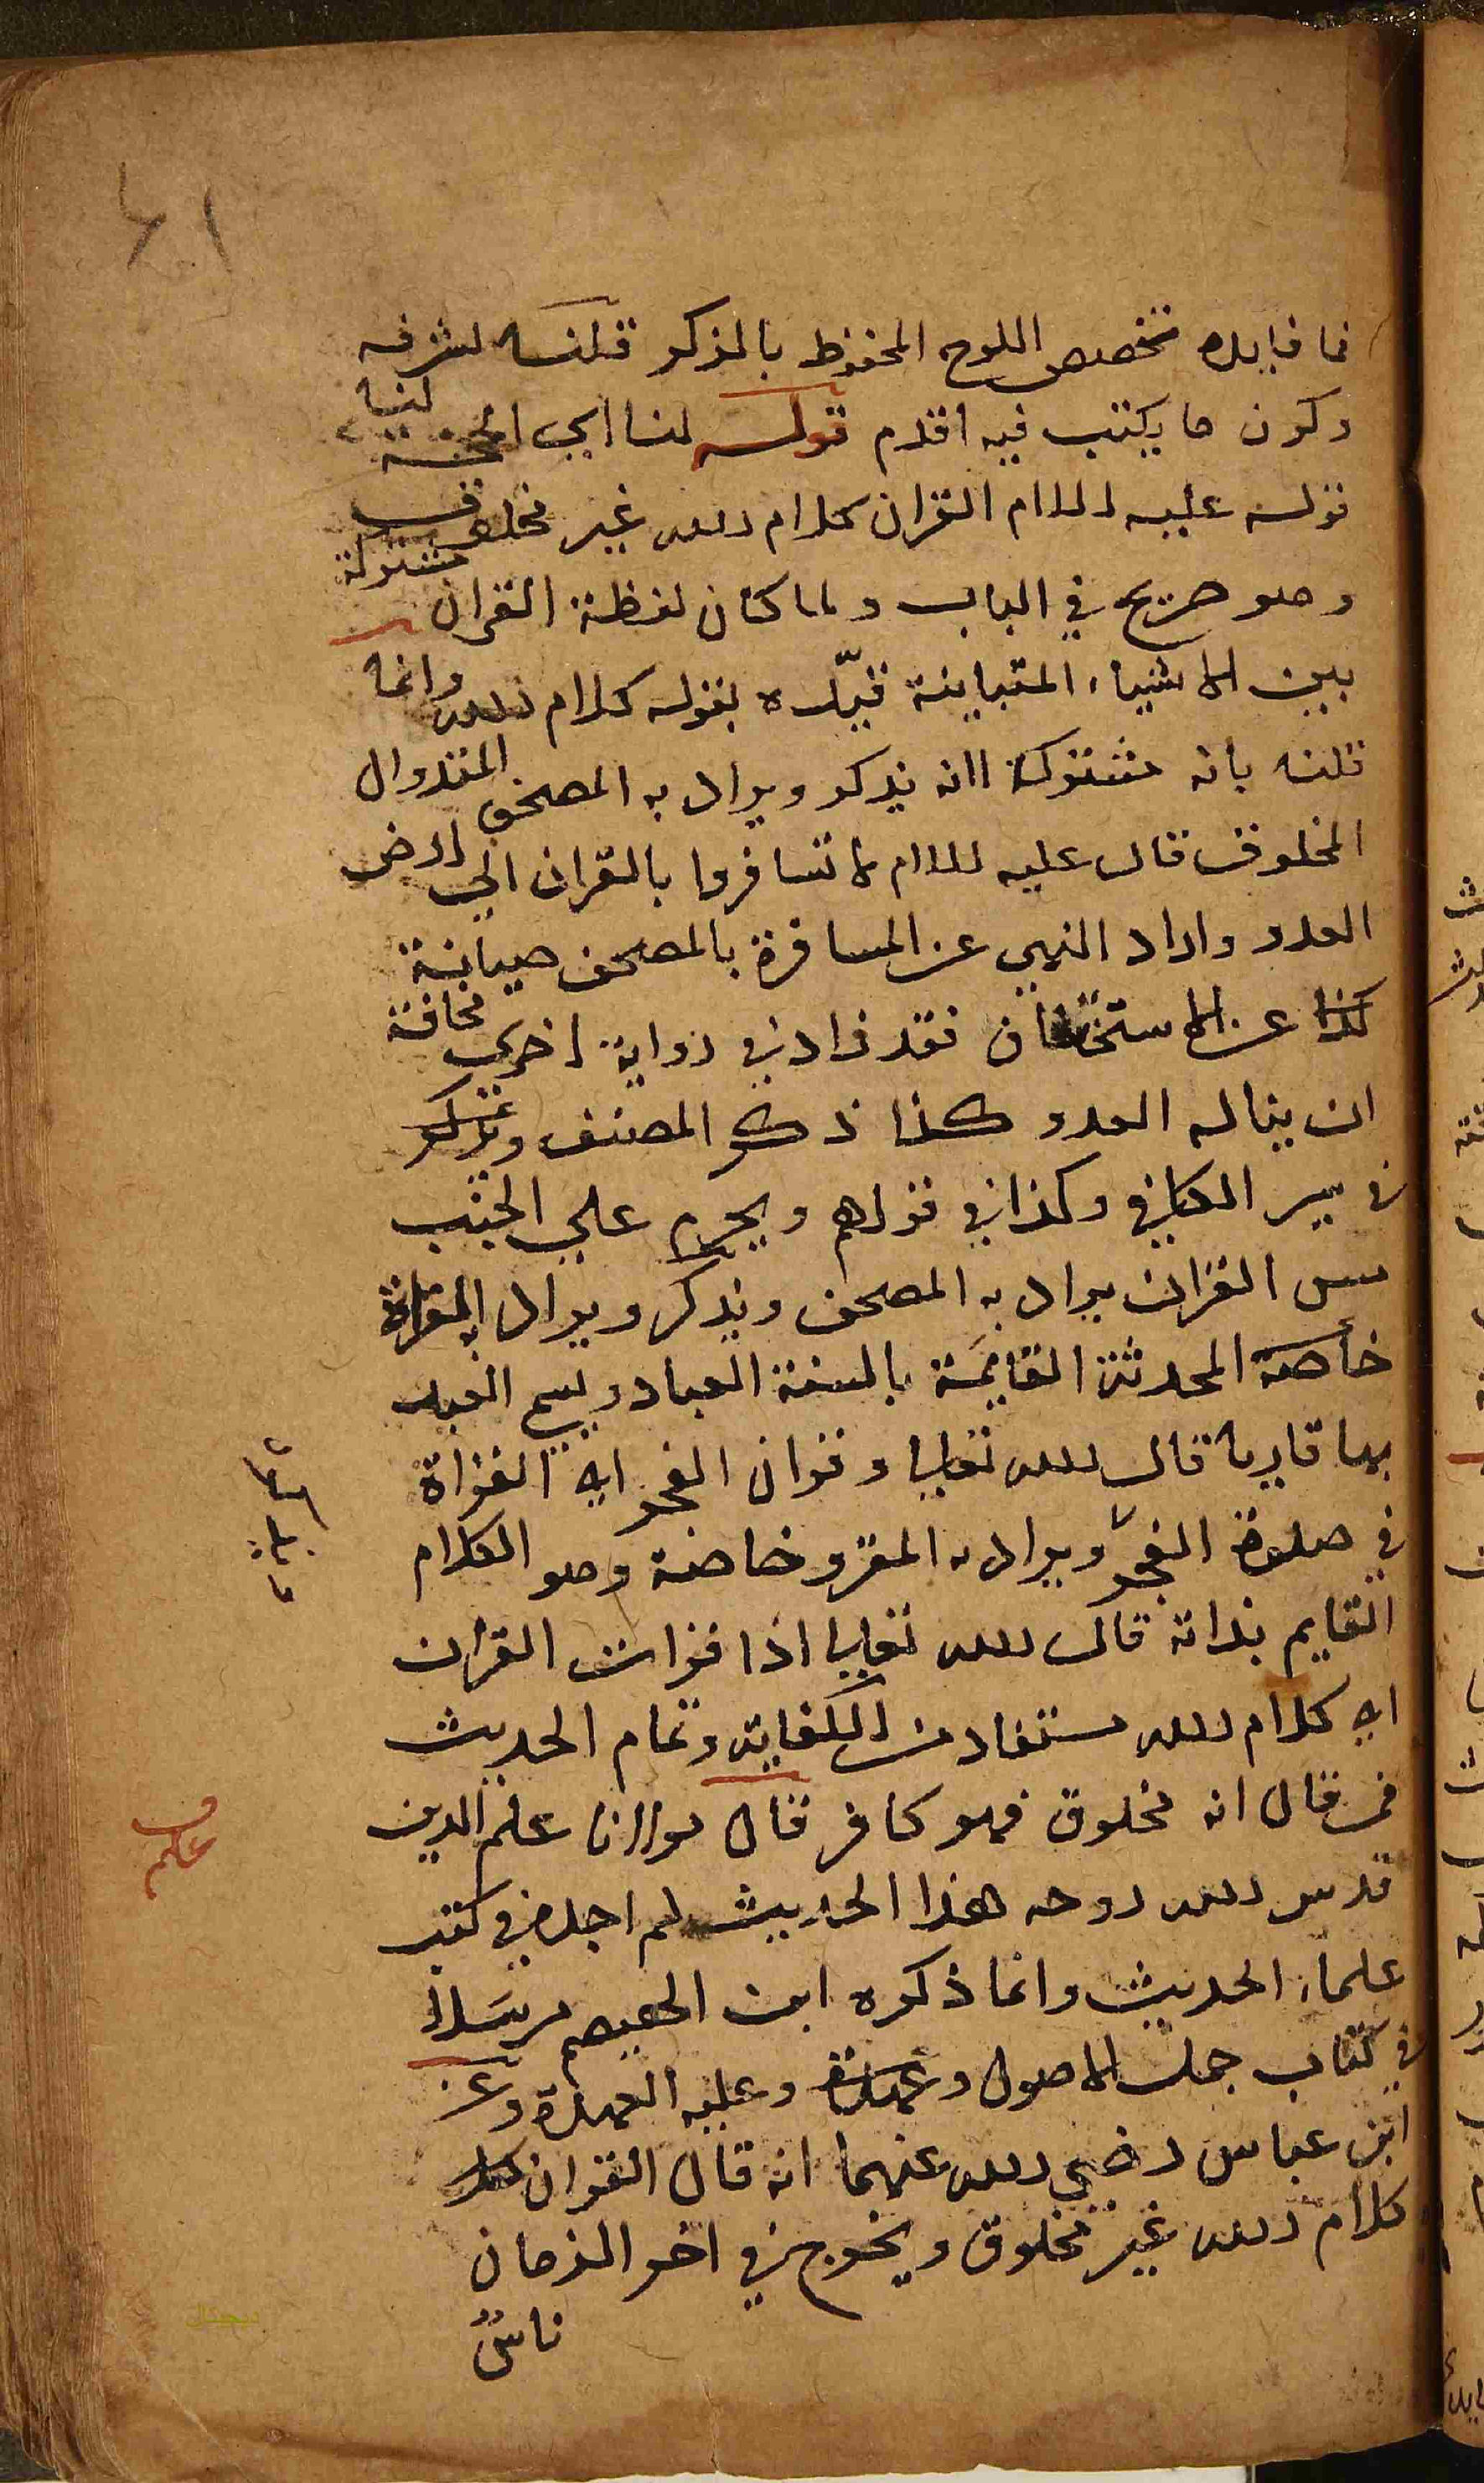 ٤١
فما فايدة تخصيص اللوح المحفوظ بالذكر قلنا لشرفه
وكون ما يكتب فيه اقدم قوله لنا اي الحجة لنا
قوله عليه السلام القران كلام الله غير مخلوق
وهو صريح في الباب ولما كان لفظة القران مشتركة
بين الاشياء المتباينة قيّده بقوله كلام الله وانما
قلنا بانه مشتركة لانه يذكر ويراد به المصحف المقدر ال
المخلوق قال عليه السلام لا تسافروا بالقران الي ارض
العدو واراد النهي عن المسافرة بالمصحف صيانة
عن الاستخفاف فقد زاد في رواية اخري مخافة
ان يناله العدو كذا ذكر المصنف
في سير الكافي وكذا في قولهم ويحرم علي الجنب
مس القران يراد به المصحف ويذكر ويراد به القراة
خاصة المحدثة القايمة بالسنة العباد ويسمي العبد
بها قاريا قال الله تعالي وقران الفجر اي القراة
في صلوة الفجر ويراد به المقرو خاصة وهو الكلام
القايم بذاته قال الله تعالي اذا قرات القران
اي كلام الله مستفاد من الكفاية وتمام الحديث
فمن قال انه مخلوق فهو كافر قال مولانا علم الدين
قدس الله روحه هذا الحديث لم اجد في كتب
علماء الحديث وانما ذكره ابن الهيصم مرسَلاً
في كتاب جمل الاصول وعليه العهدة وعن
ابن عباس رضي الله عنهما انه قال القران
كلام الله غير مخلوق ويخرج في اخر الزمان
ناسٌ
قف
علم